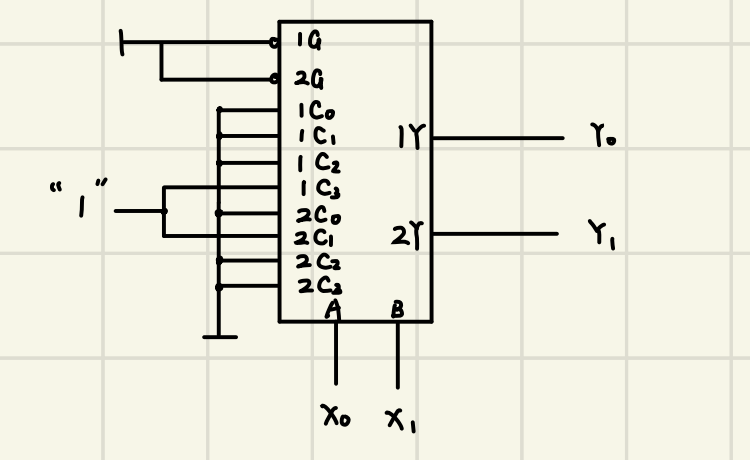 1G
2G
1C₀
1C₁
1C₂
1C₃
2C₀
2C₁
2C₂
2C₃
"1"
1Y
2Y
Y₀
Y₁
A B
X₀ X₁